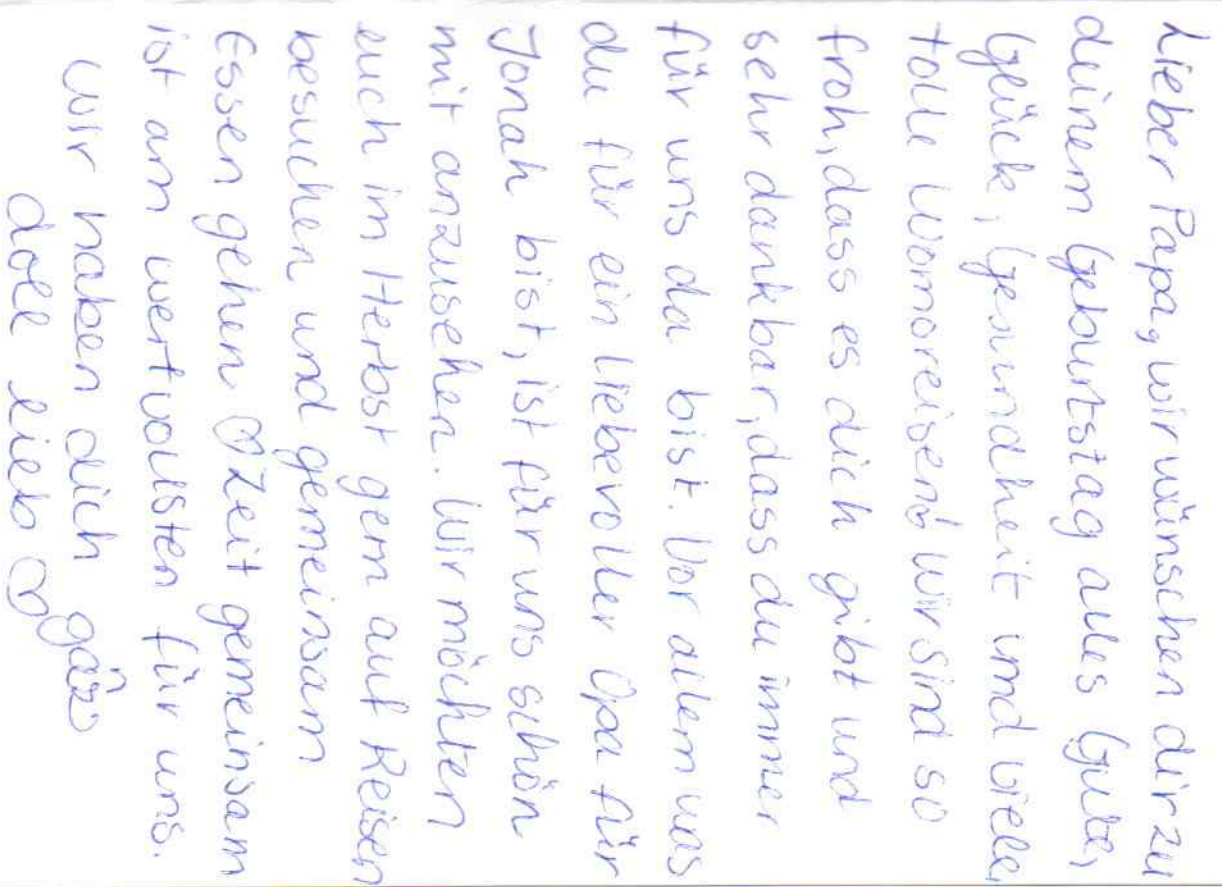 Lieber Papa, wir wünschen dir zu
deinem Geburtstag alles Gute,
Glück, Gesundheit und viele
tolle Womoreisen! Wir sind so
froh, dass es dich gibt und
sehr dankbar, dass du immer
für uns da bist. Vor allem was
du für ein liebevoller Opa für
Jonah bist, ist für uns schön
mit anzusehen. Wir möchten
euch im Herbst gern auf Reisen
besuchen und gemeinsam
Essen gehen ♡ Zeit gemeinsam
ist am wertvollsten für uns.
Wir haben dich
doll lieb ♡